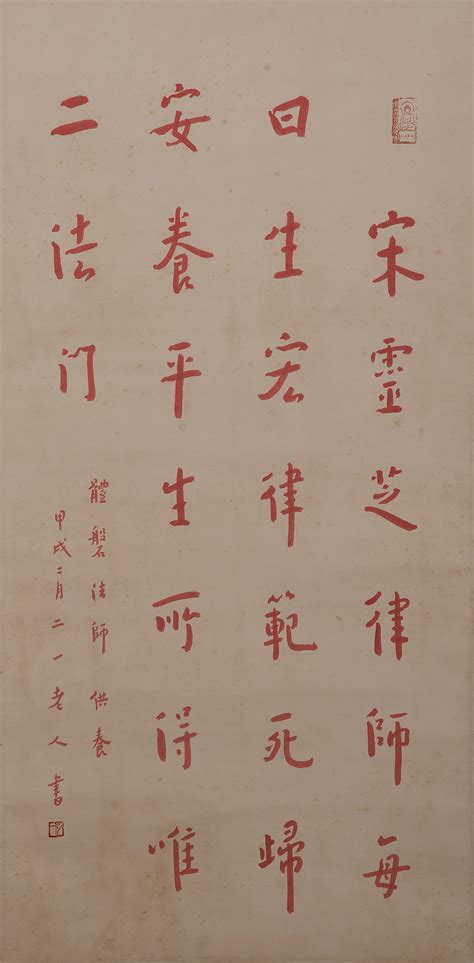 宋靈芝律師每
曰生宏律範死歸
安養平生所得唯
二法门
體磐法師 供養
甲戌二月二一老人書